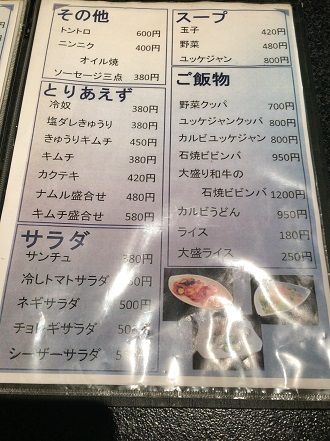 その他
トントロ 600円
ニンニク 400円
オイル焼
ソーセージ三点 380円
とりあえず
冷奴 380円
塩ダレきゅうり 380円
きゅうりキムチ 450円
キムチ 380円
カクテキ 420円
ナムル盛合せ 480円
キムチ盛合せ 580円
サラダ
サンチュ 380円
冷しトマトサラダ 円
ネギサラダ 500円
チョレギサラダ 円
シーザーサラダ 円
スープ
玉子 420円
野菜 480円
ユッケジャン 800円
ご飯物
野菜クッパ 700円
ユッケジャンクッパ 800円
カルビユッケジャン 800円
石焼ビビンバ 950円
大盛り和牛の
石焼ビビンバ 1200円
カルビうどん 950円
ライス 180円
大盛ライス 250円